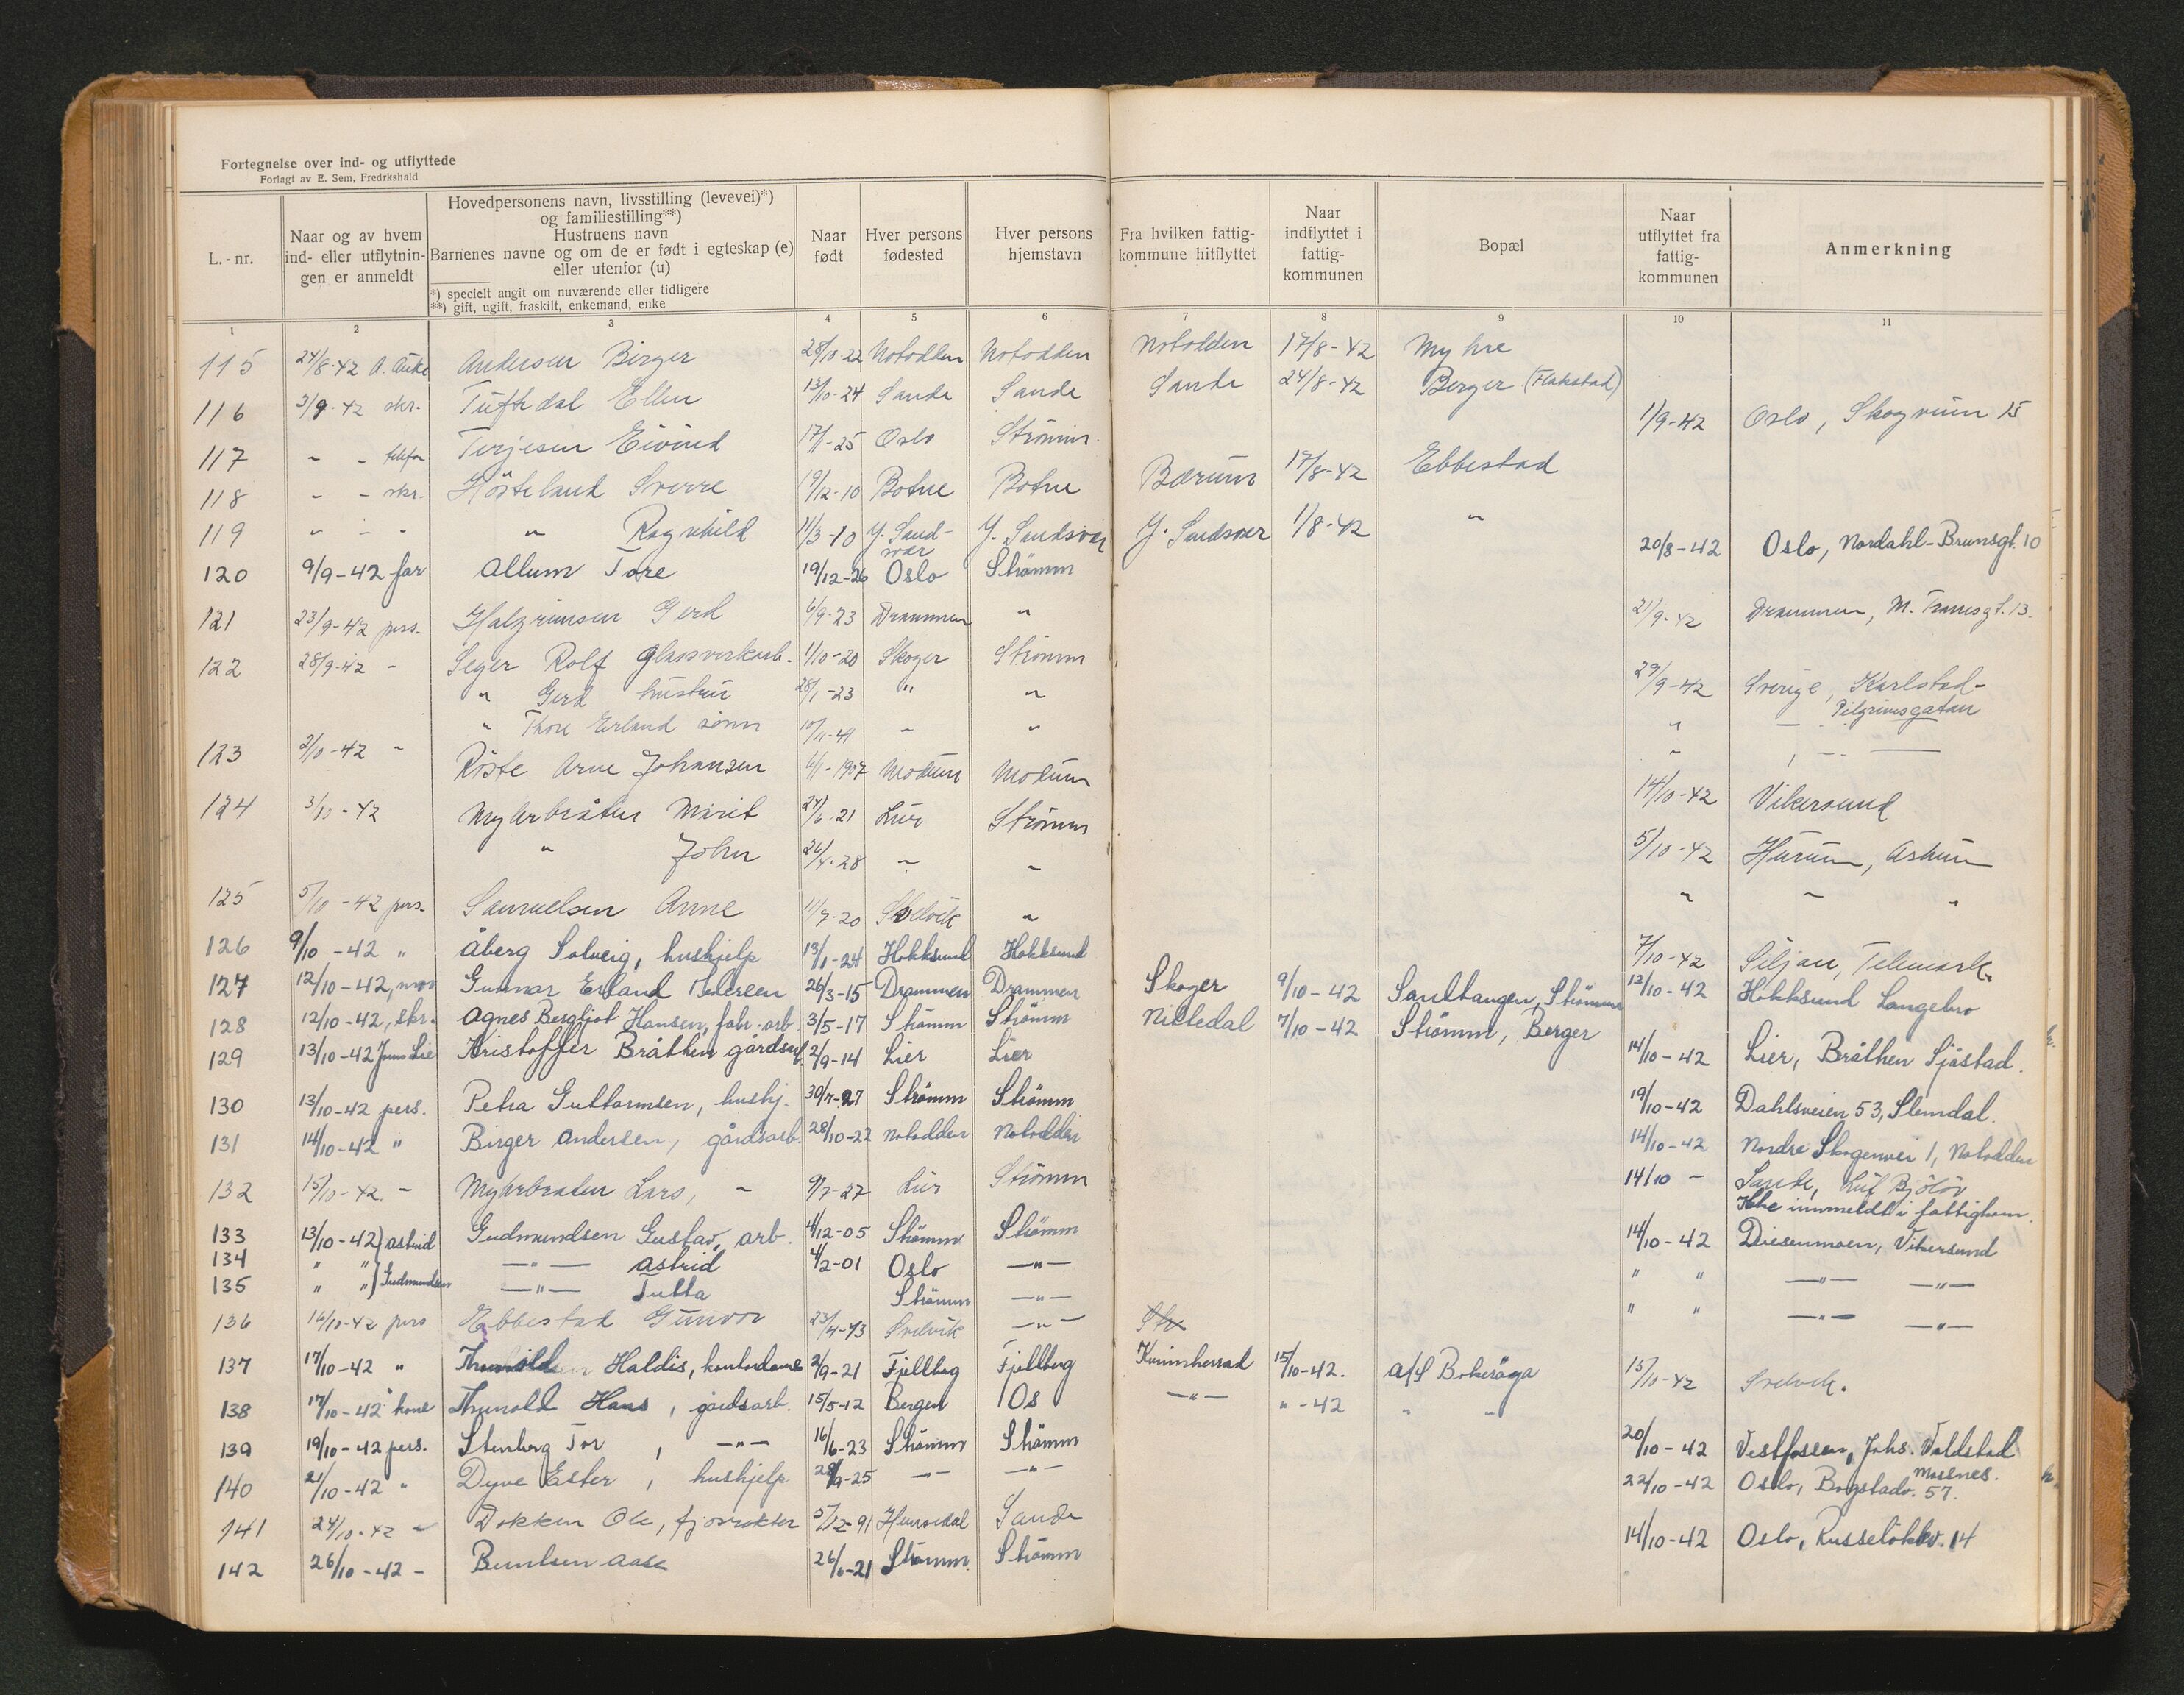 Fortegnelse over ind- og utflyttede
Forlagt av E. Sem, Fredrkshald
L.-nr.
Naar og av hvem ind- eller utflytnin-gen er anmeldt
Hovedpersonens navn, livsstilling (levevei)*)
og familiestilling**)
Hustruens navn
Barnenes navne og om de er født i egteskap (e)
eller utenfor (u)
*) specielt angit om nuværende eller tidligere
**) gift, ugift, fraskilt, enkemand, enke
Naar født
Hver persons fødested
Hver persons hjemstavn
Fra hvilken fattig-kommune hitflyttet
Naar indflyttet i fattig-kommunen
Bopæl
Naar utflyttet fra fattig-kommunen
Anmerkning
1 2 3 4 5 6 7 8 9 10 11
115 24/8-42 Andersen Birger 28/10-22 Notodden Notodden Notodden 17/8-42 Myhre
116 3/9-42 skr. Tuftedal Ellen 13/10-24 Sande Sande Sande 24/8-42 Berger (Flakstad)
117 " - telefon Terjesen Eivind 17/1-25 Oslo Strömm 1/9-42 Oslo, Skogveien 15
118 - - skr. Hösteland Sverre 19/12-10 Botne Botne Bærum 17/8-42 Ebbestad
119 " - - " Ragnhild 11/3-10 Y. Sandsvær Y. Sandsvær Y. Sandsvær 1/8-42 "
120 9/9-42 far Allum Tore 19/12-26 Oslo Strömm 20/8-42 Oslo, Nordahl-Brunsgt. 10
121 23/9-42 pers. Halgrimsen Gerd 6/9-23 Drammen " 21/9-42 Drammen, M. Tranesgt. 13.
122 28/9-42 - Seger Rolf glassverkarb. 1/10-20 Skoger Strömm 29/9-42 Sverige, Karlstad-
Pilgrimsgatan
" Gerd hustru 28/1-23 " " "
" Thore Erland sönn 10/11-41 - " "
123 2/10-42 " Röste Arne Johansen 6/1-1907 Modum Modum 14/10-42 Vikersund
124 3/10-42 Myhrbråten Marit 24/6-21 Lier Strömm 5/10-42 Hurum,
" John 26/4-28 - - " " "
125 5/10-42 pers. Samuelsen Anne 11/7-20 Svelvik " 7/10-42 Siljan, Telemark.
126 9/10-42 " Åberg Solveig, hushjelp 13/1-24 Hokksund Hokksund 12/10-42 Hokksund Langebro
127 12/10-42, mor Gunnar Erland Pedersen 26/3-15 Drammen Drammen Skoger 9/10-42 Sandtangen, Strömm
128 12/10-42, skr. Agnes Bergljot Hansen, fabr. arb 3/5-17 Strömm Strömm Nittedal 7/10-42 Strömm, Berger
129 13/10-42 Jens Lie Kristoffer Bråthen gårdsarb. 2/9-14 Lier Lier 14/10-42 Lier, Bråthen Sjåstad.
130 13/10-42 pers. Petra Guttormsen, hushj. 30/7-27 Strömm Strömm 19/10-42 Dahlsveien 53, Slemdal.
131 14/10-42 " Birger Andersen, gårdsarb. 28/10-22 Notodden Notodden 14/10-42 Nordre Skogenvei 1, Notodden
132 15/10-42. - Myhrbraten Lars, " 9/7-27 Lier Strömm 14/10 - Sande, Leif
Ikke innmeldt i fattigkom.
133 13/10-42 Astrid Gudmundsen Gustav, arb. 4/12-05 Strömm Strömm 14/10-42 Diesenmoen, Vikersund
134 " " -"- Astrid 4/2-01 Oslo -"- " " -"- -"-
135 " " Gudmundsen -"- Tutta Strömm -"- " " -"- -"-
136 16/10-42 pers Ebbestad Gunvor 23/4-43 Svelvik -"- 15/10-42 Svelvik.
137 17/10-42 " Thunold Haldis, kontordame 2/9-21 Fjellberg Fjellberg Kvinnherrad 15/10-42. A/S Bokeröya
138 17/10-42 kone Thunold Hans, gårdsarb. 15/5-12 Bergen Os -"- " -42 " "
139 19/10-42 pers. Stenberg Tor, -"- 16/6-23 Strömm Strömm 20/10-42 Vestfossen, Johs. Valdstad
Mossnes.
140 21/10-42 " Dyve Ester, hushjelp 28/9-25 -"- -"- 22/10-42 Oslo, Bogstadv. 57.
141 24/10-42 " Dokken Ole, fjösrökter 5/12-91 Hemsedal Sande 14/10-42 Oslo, Russelökkv. 14
142 26/10-42 - Berntsen Aase 26/6-21 Strömm. Strömm